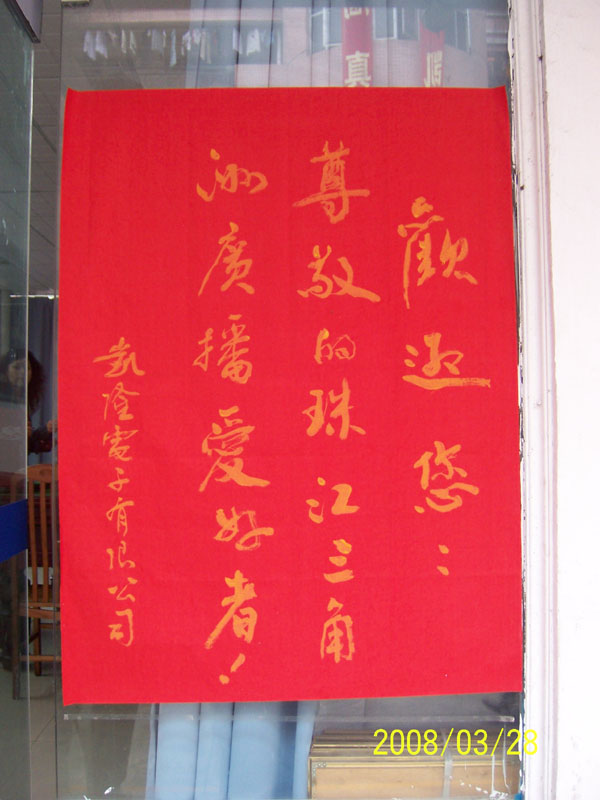 歡迎您：
尊敬的珠江三角
洲廣播愛好者！
凱隆電子有限公司
真
2008/03/28